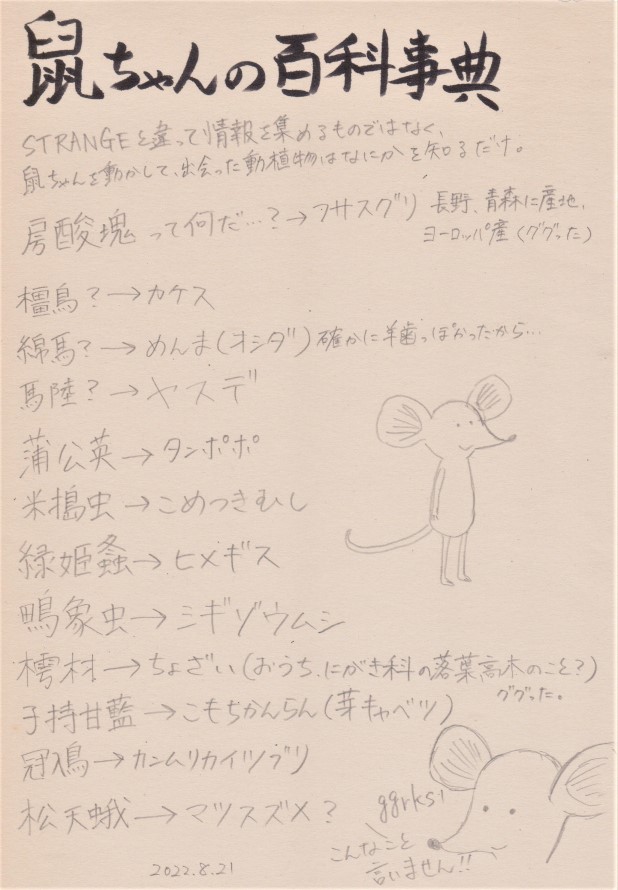 鼠ちゃんの百科事典
STRANGEと違って情報を集めるものではなく、
鼠ちゃんを動かして、出会った動植物はなにかを知るだけ。
房酸塊 って何だ…?→フサスグリ 長野、青森に産地、
ヨーロッパ産(ググった)
橿鳥?→カケス
綿馬?→めんま(オシダ) 確かに羊歯っぽかったから…
馬陸?→ヤスデ
蒲公英→タンポポ
米搗虫→こめつきむし
緑姫螽→ヒメギス
鴫象虫→シギゾウムシ
樗材→ちょざい(おうち、にがき科の落葉高木のこと?)
ググった。
子持甘藍→こもちかんらん(芽キャベツ)
冠鳰→カンムリカイツブリ
松天蛾→マツスズメ?
ggrks!
こんなこと
言いません!!
2022.8.21